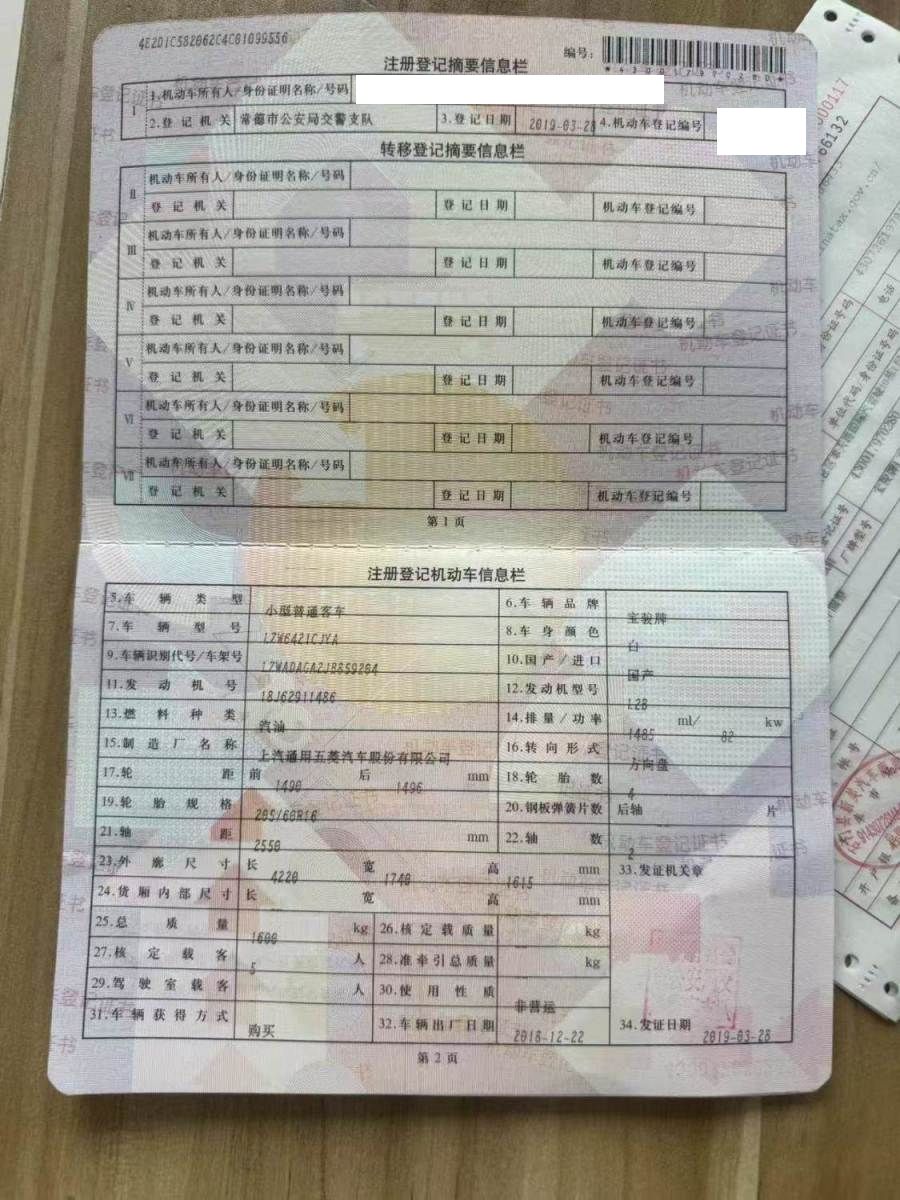 4E201C582062C4C01099556
编号:
注册登记摘要信息栏
I
1.机动车所有人/身份证明名称/号码
2.登记机关 常德市公安局交警支队 3.登记日期 2019-03-28 4.机动车登记编号
转移登记摘要信息栏
II
机动车所有人/身份证明名称/号码
登记机关 登记日期 机动车登记编号
III
机动车所有人/身份证明名称/号码
登记机关 登记日期 机动车登记编号
IV
机动车所有人/身份证明名称/号码
登记机关 登记日期 机动车登记编号
V
机动车所有人/身份证明名称/号码
登记机关 登记日期 机动车登记编号
VI
机动车所有人/身份证明名称/号码
登记机关 登记日期 机动车登记编号
VII
机动车所有人/身份证明名称/号码
登记机关 登记日期 机动车登记编号
第1页
注册登记机动车信息栏
5.车辆类型 小型普通客车 6.车辆品牌 宝骏牌
7.车辆型号 LZW6421CJYA 8.车身颜色 白
9.车辆识别代号/车架号 10.国产/进口 国产
11.发动机号 18J62911486 12.发动机型号 L2B
13.燃料种类 汽油 14.排量/功率 1485 ml/ 82 kw
15.制造厂名称 上汽通用五菱汽车股份有限公司 16.转向形式 方向盘
17.轮距 前 1490 后 1496 mm 18.轮胎数 4
19.轮胎规格 205/60R16 20.钢板弹簧片数 后轴 片
21.轴距 2550 mm 22.轴数 2
23.外廓尺寸 长 4220 宽 1740 高 1615 mm 33.发证机关章
24.货厢内部尺寸 长 宽 高 mm
25.总质量 1600 kg 26.核定载质量 kg
27.核定载客 5 人 28.准牵引总质量 kg
29.驾驶室载客 人 30.使用性质 非营运
31.车辆获得方式 购买 32.车辆出厂日期 2018-12-22 34.发证日期 2019-03-28
第2页
000117
66132
电话
身份证号码
单位代码/身份证号码
厂牌型号